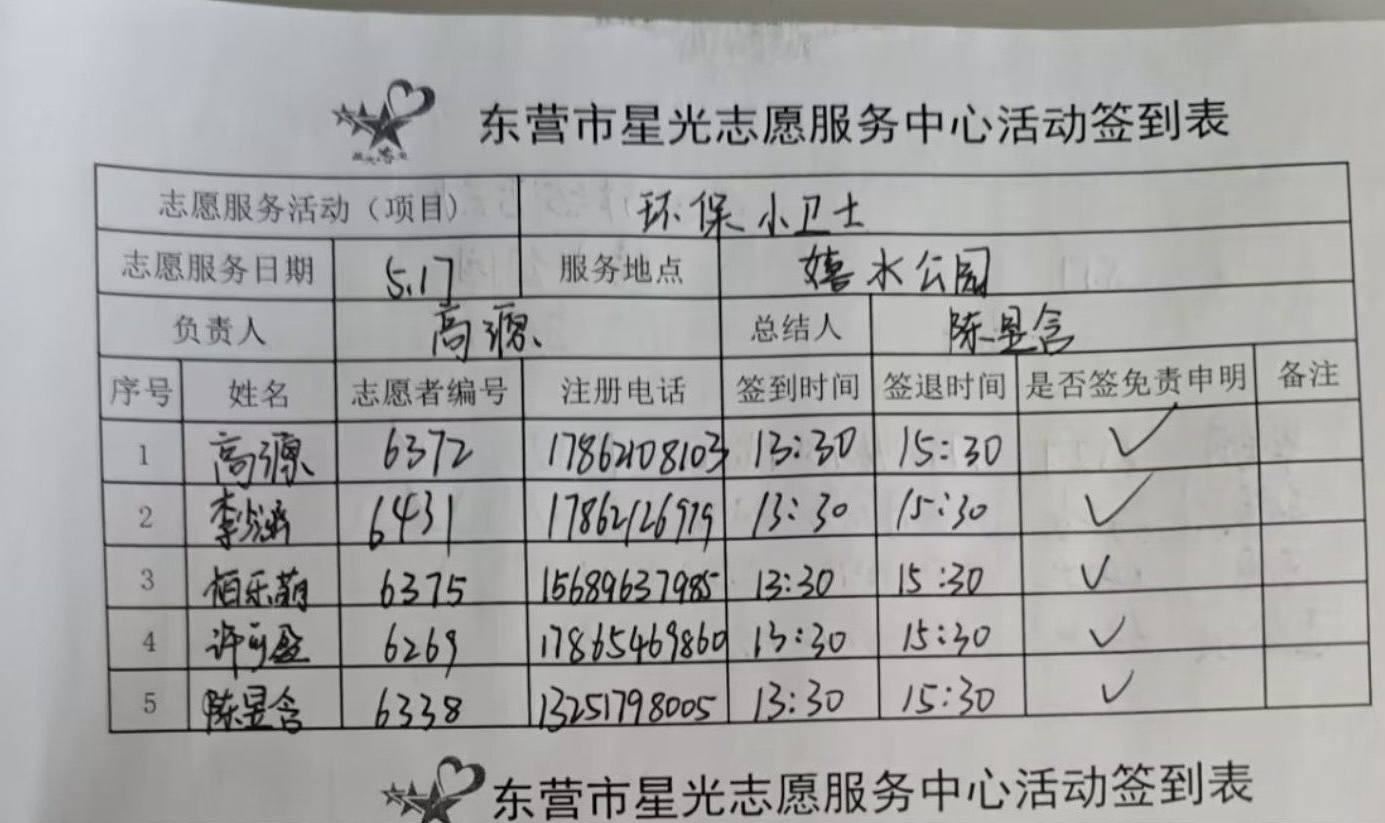 东营市星光志愿服务中心活动签到表
志愿服务活动（项目） 环保小卫士
志愿服务日期 5.17 服务地点 嬉水公园
负责人 高源 总结人 陈昱含
序号 姓名 志愿者编号 注册电话 签到时间 签退时间 是否签免责申明 备注
1 高源 6372 17862108103 13:30 15:30 ✓
2 6431 17862126979 13:30 15:30 ✓
3 6375 15689637985 13:30 15:30 ✓
4 许可盈 6269 17865469860 13:30 15:30 ✓
5 陈昱含 6338 13251798005 13:30 15:30 ✓
东营市星光志愿服务中心活动签到表